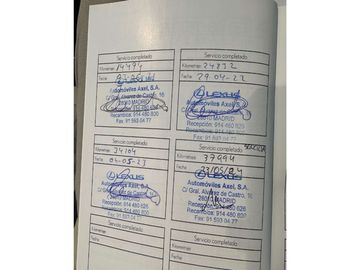 Servicio completado
Kilometraje: 14494
Fecha:
LEXUS
Automóviles Axel, S.A.
C/ Gral. Alvarez de Castro, 16
28010 MADRID
Recepción: 914 480 826
Recambios: 914 480 830
Fax: 91 593 04 77
Servicio completado
Kilometraje: 24832
Fecha: 29-04-22
LEXUS
Automóviles Axel, S.A.
C/ Gral. Alvarez de Castro, 16
28010 MADRID
Recepción: 914 480 826
Recambios: 914 480 830
Fax: 91 593 04 77
Servicio completado
Kilometraje: 34104
Fecha: 04-05-23
LEXUS
Automóviles Axel, S.A.
C/ Gral. Alvarez de Castro, 16
28010 MADRID
Recepción: 914 480 826
Recambios: 914 480 830
Fax: 91 593 04 77
Servicio completado
Kilometraje: 37994
Fecha: 23/05/24
LEXUS
Automóviles Axel, S.A.
C/ Gral. Alvarez de Castro, 16
28010 MADRID
Recepción: 914 480 826
Recambios: 914 480 830
Fax: 91 593 04 77
Servicio completado
Kilometraje:
Fecha:
Servicio completado
Kilometraje:
Fecha: